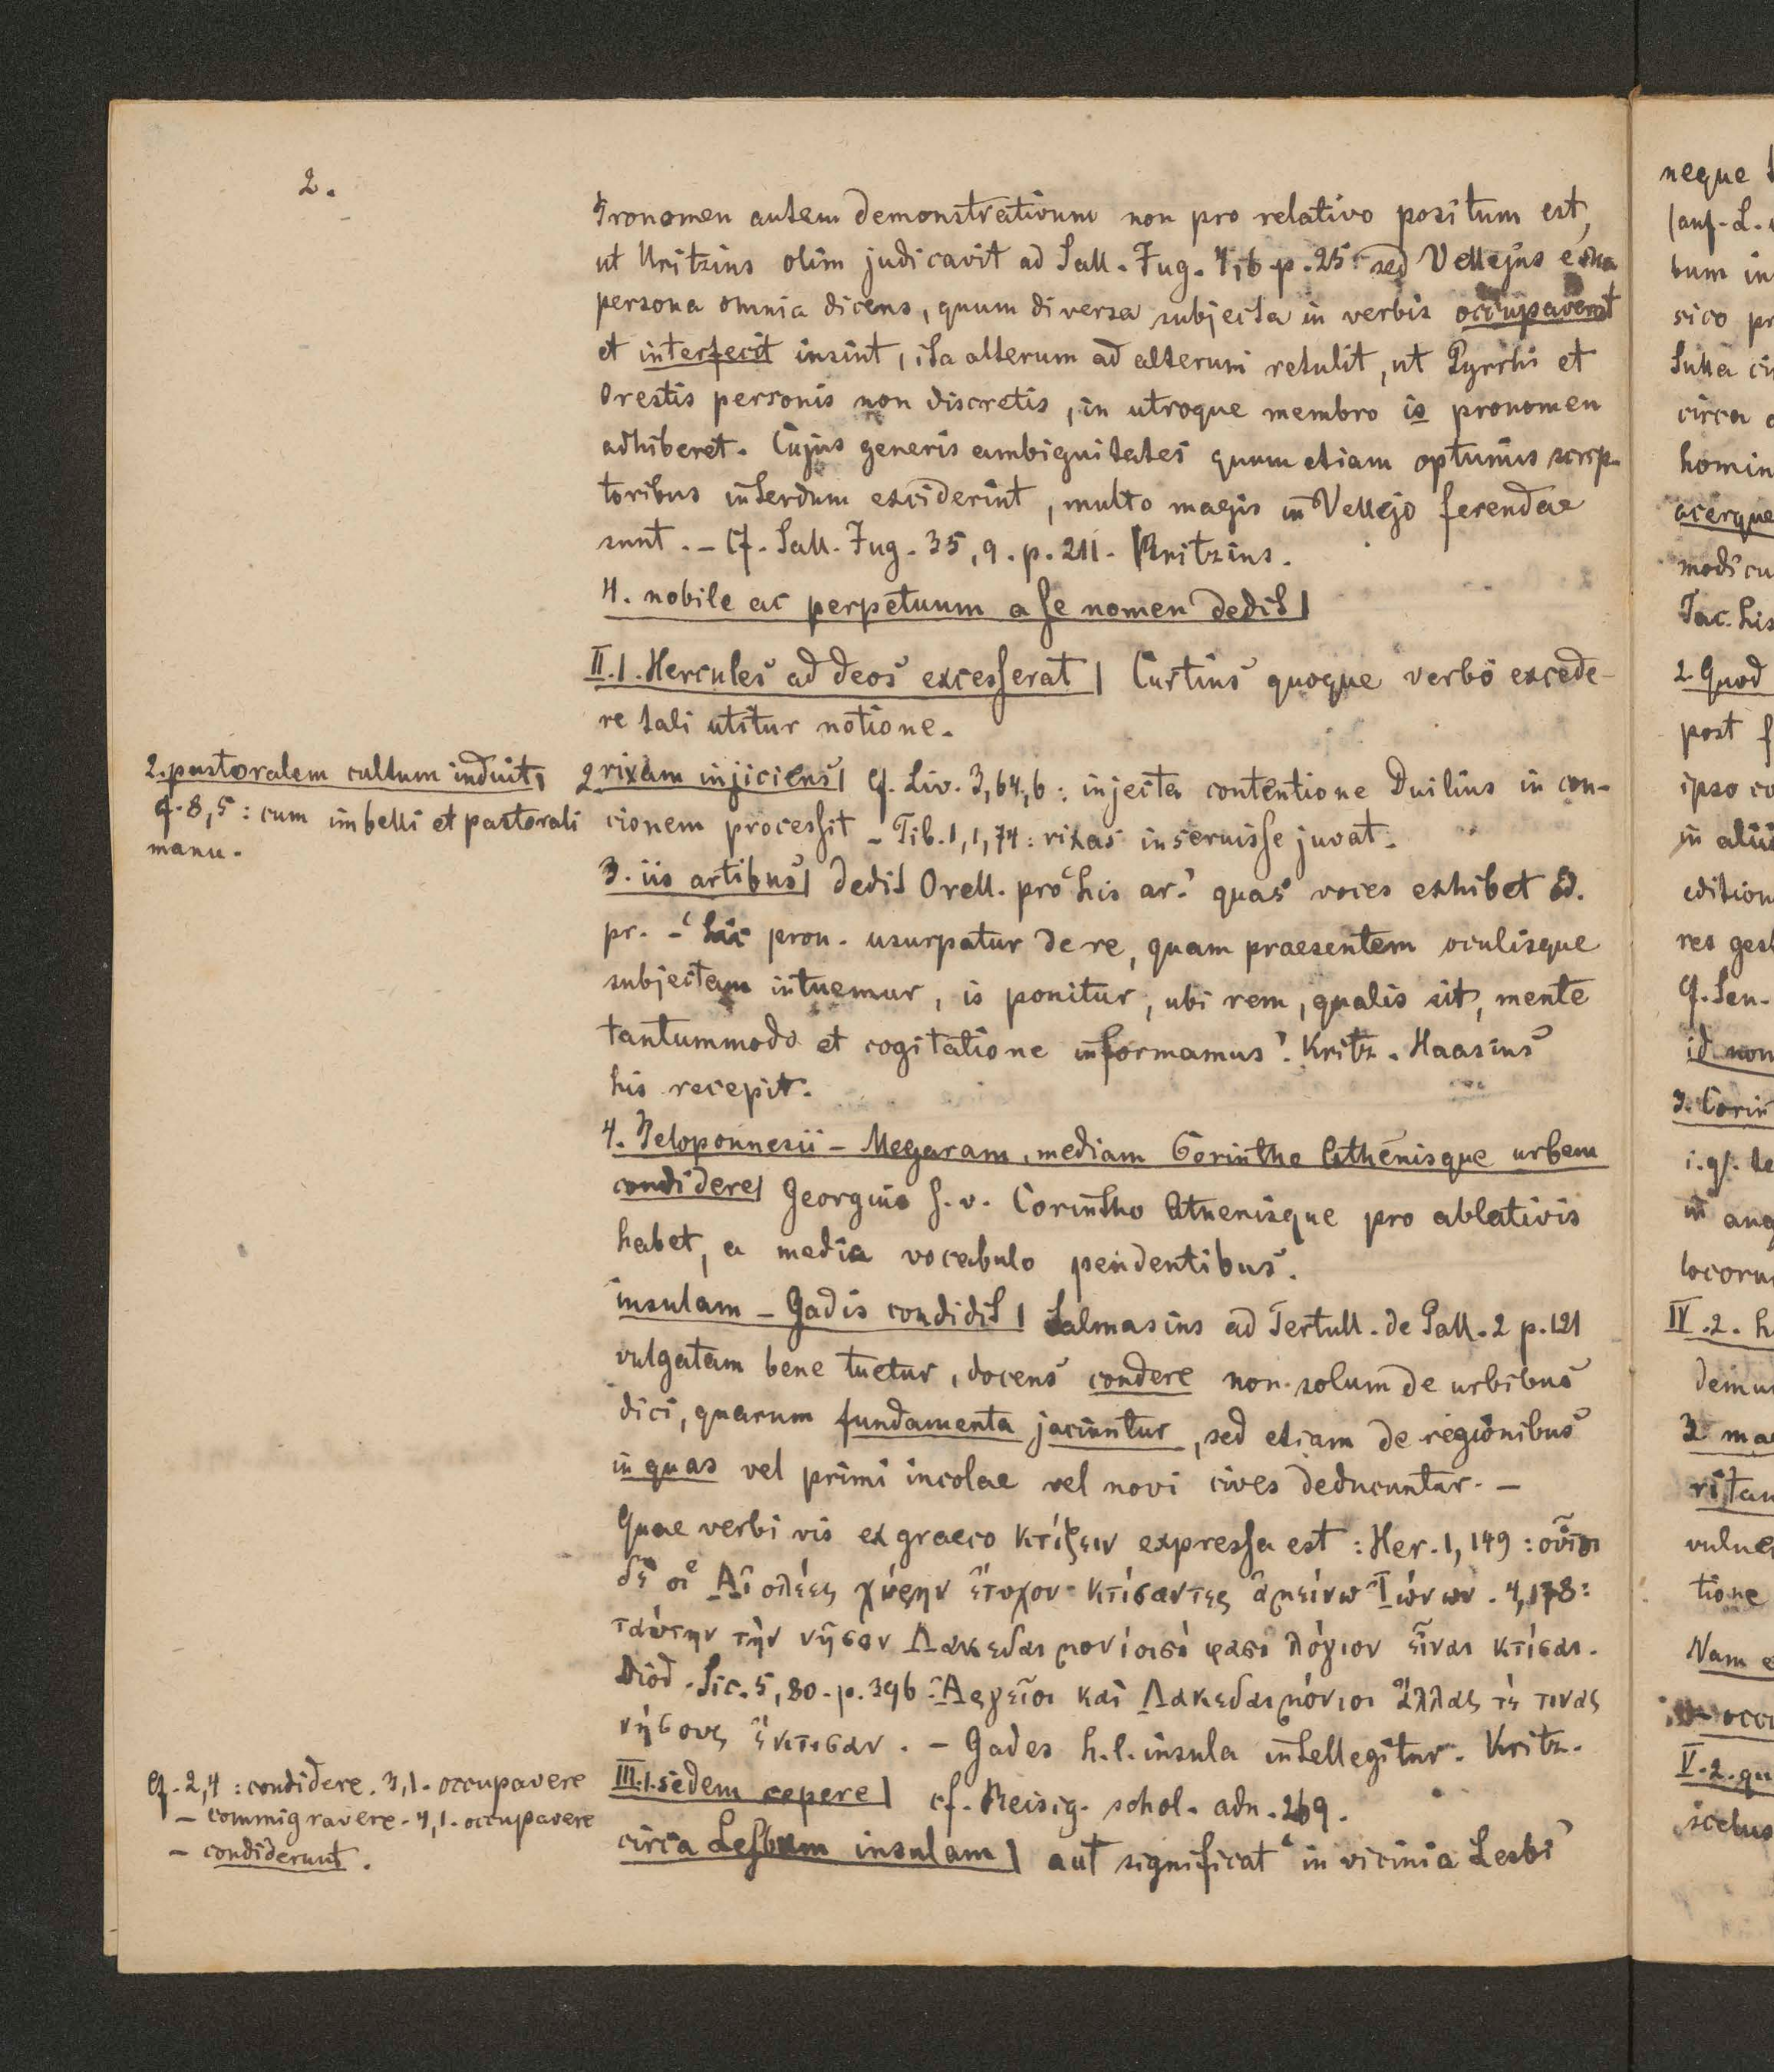 2.
Pronomen autem demonstrativum non pro relativo positum est,
ut Kritzius olim judicavit ad Sall. Jug. 7,6 p. 25. sed Vellejus e sua
persona omnia dicens, quum diversa subjecta in verbis occupaverat
et interfecit insint, ita alterum ad alterum retulit, ut Pyrrhi et
Orestis personis non discretis, in utroque membro is pronomen
adhiberet. Cujus generis ambiguitates quum etiam optumis scrip-
toribus interdum exciderint, multo magis in Vellejo ferendae
sunt. – Cf. Sall. Jug. 35, 9. p. 211. Kritzius.
4. nobile ac perpetuum a se nomen dedit|
II.1. Hercules ad deos excesserat| Curtius quoque verbo excede-
re tali utitur notione.
2. pastoralem cultum induit|
cf. 8,5: cum imbelli et pastorali
manu.
2 rixam injiciens| Cf. Liv. 3,64,6: injecta contentione Duilius in con-
cionem processit – Tib. 1,1,74: rixas inseruisse juvat.
3. iis artibus| dedit Orell. pro ‘his ar.’ quas voces exhibet Ed.
pr. – ‘hic pron. usurpatur de re, quam praesentem oculisque
subjectam intuemur, is ponitur, ubi rem, qualis sit, mente
tantummodo et cogitatione informamus’. Kritz. Haasius
his recepit.
4. Peloponnesii – Megaram, mediam Corintho Athenisque urbem
condidere| Georgius s.v. Corintho Athenisque pro ablativis
habet, a media vocabulo pendentibus.
insulam – Gadis condidit| Salmasius ad Tertull. de Pall. 2 p. 121
vulgatam bene tuetur, docens condere non solum de urbibus
dici, quarum fundamenta jaciuntur, sed etiam de regionibus
in quas vel primi incolae vel novi cives deducuntur. –
Quae verbi vis ex graeco κτίζειν expressa est: Her. 1, 149: οὗτοι
δὲ οἱ Αἰολέες χώρην ἔτυχον κτίσαντες ἀμείνω Ἰώνων. 4,178:
ταύτην τὴν νῆσον Λακεδαιμονίοισί φασι λόγιον εἶναι κτίσαι.
Diod. Sic. 5, 80. p. 396: Ἀργεῖοι καὶ Λακεδαιμόνιοι ἄλλας τέ τινας
νήσους ἔκτισαν. – Gades h.l. insula intellegitur. Kritz.
Cf. 2,4: condidere. 3,1. occupavere
– commigravere. 4,1. occupavere
– condiderunt.
III.1. sedem cepere| cf. Reisig. schol. adn. 269.
circa Lesbum insulam| aut significat ‘in vicinia Lesbi’
neque
bum in
sico
circa
homin
acerque
modicu
Tac. his
2. Quod
post
ipso co
in alii
edition
res gest
Cf. Sen.
id non
3. Corin
in ang
locoru
IV.2. h
demu
3 ma
ritan
vulne
tione
Nam e
occu
V.2. qu
scelus